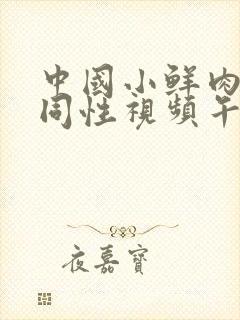 中國小鲜肉
同性視頻午
夜嘉寶